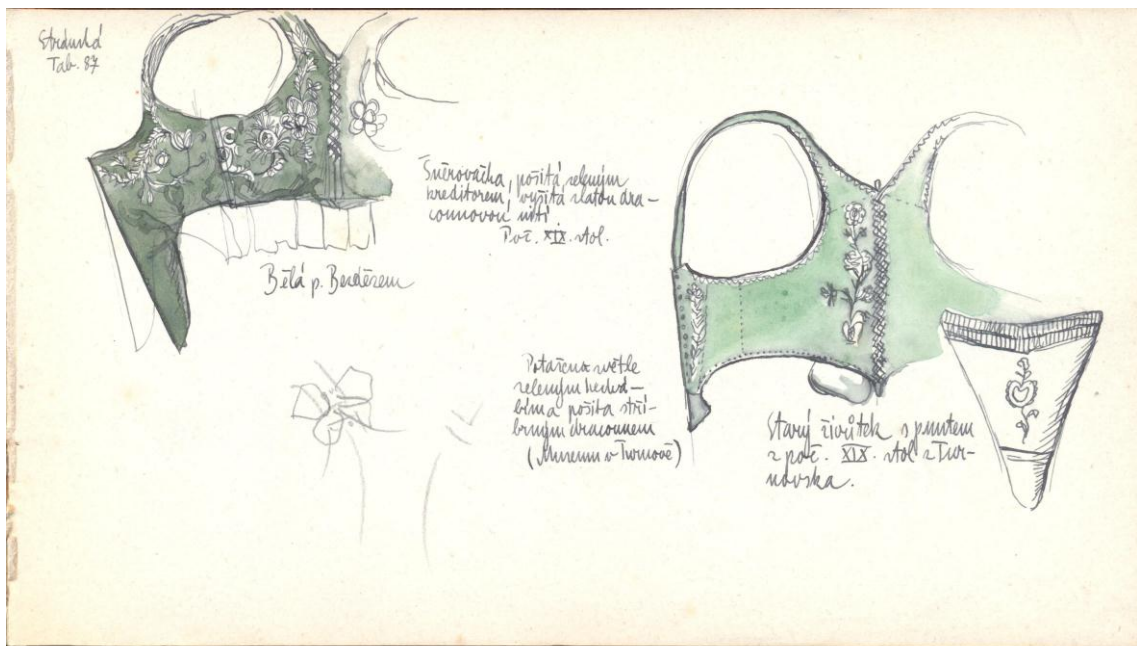 Stránská
Tab. 87
Šněrovačka, pošitá zeleným
kreditorem, vyšitá zlatou dra-
counovou nití.
Poč. XIX. stol.
Bělá p. Bezdězem
Potažena světle
zeleným hedvá-
bím a pošita stří-
brným dracounem
(Museum v Turnově)
Starý živůtek s puntem
z poč. XIX. stol z Tur-
novska.